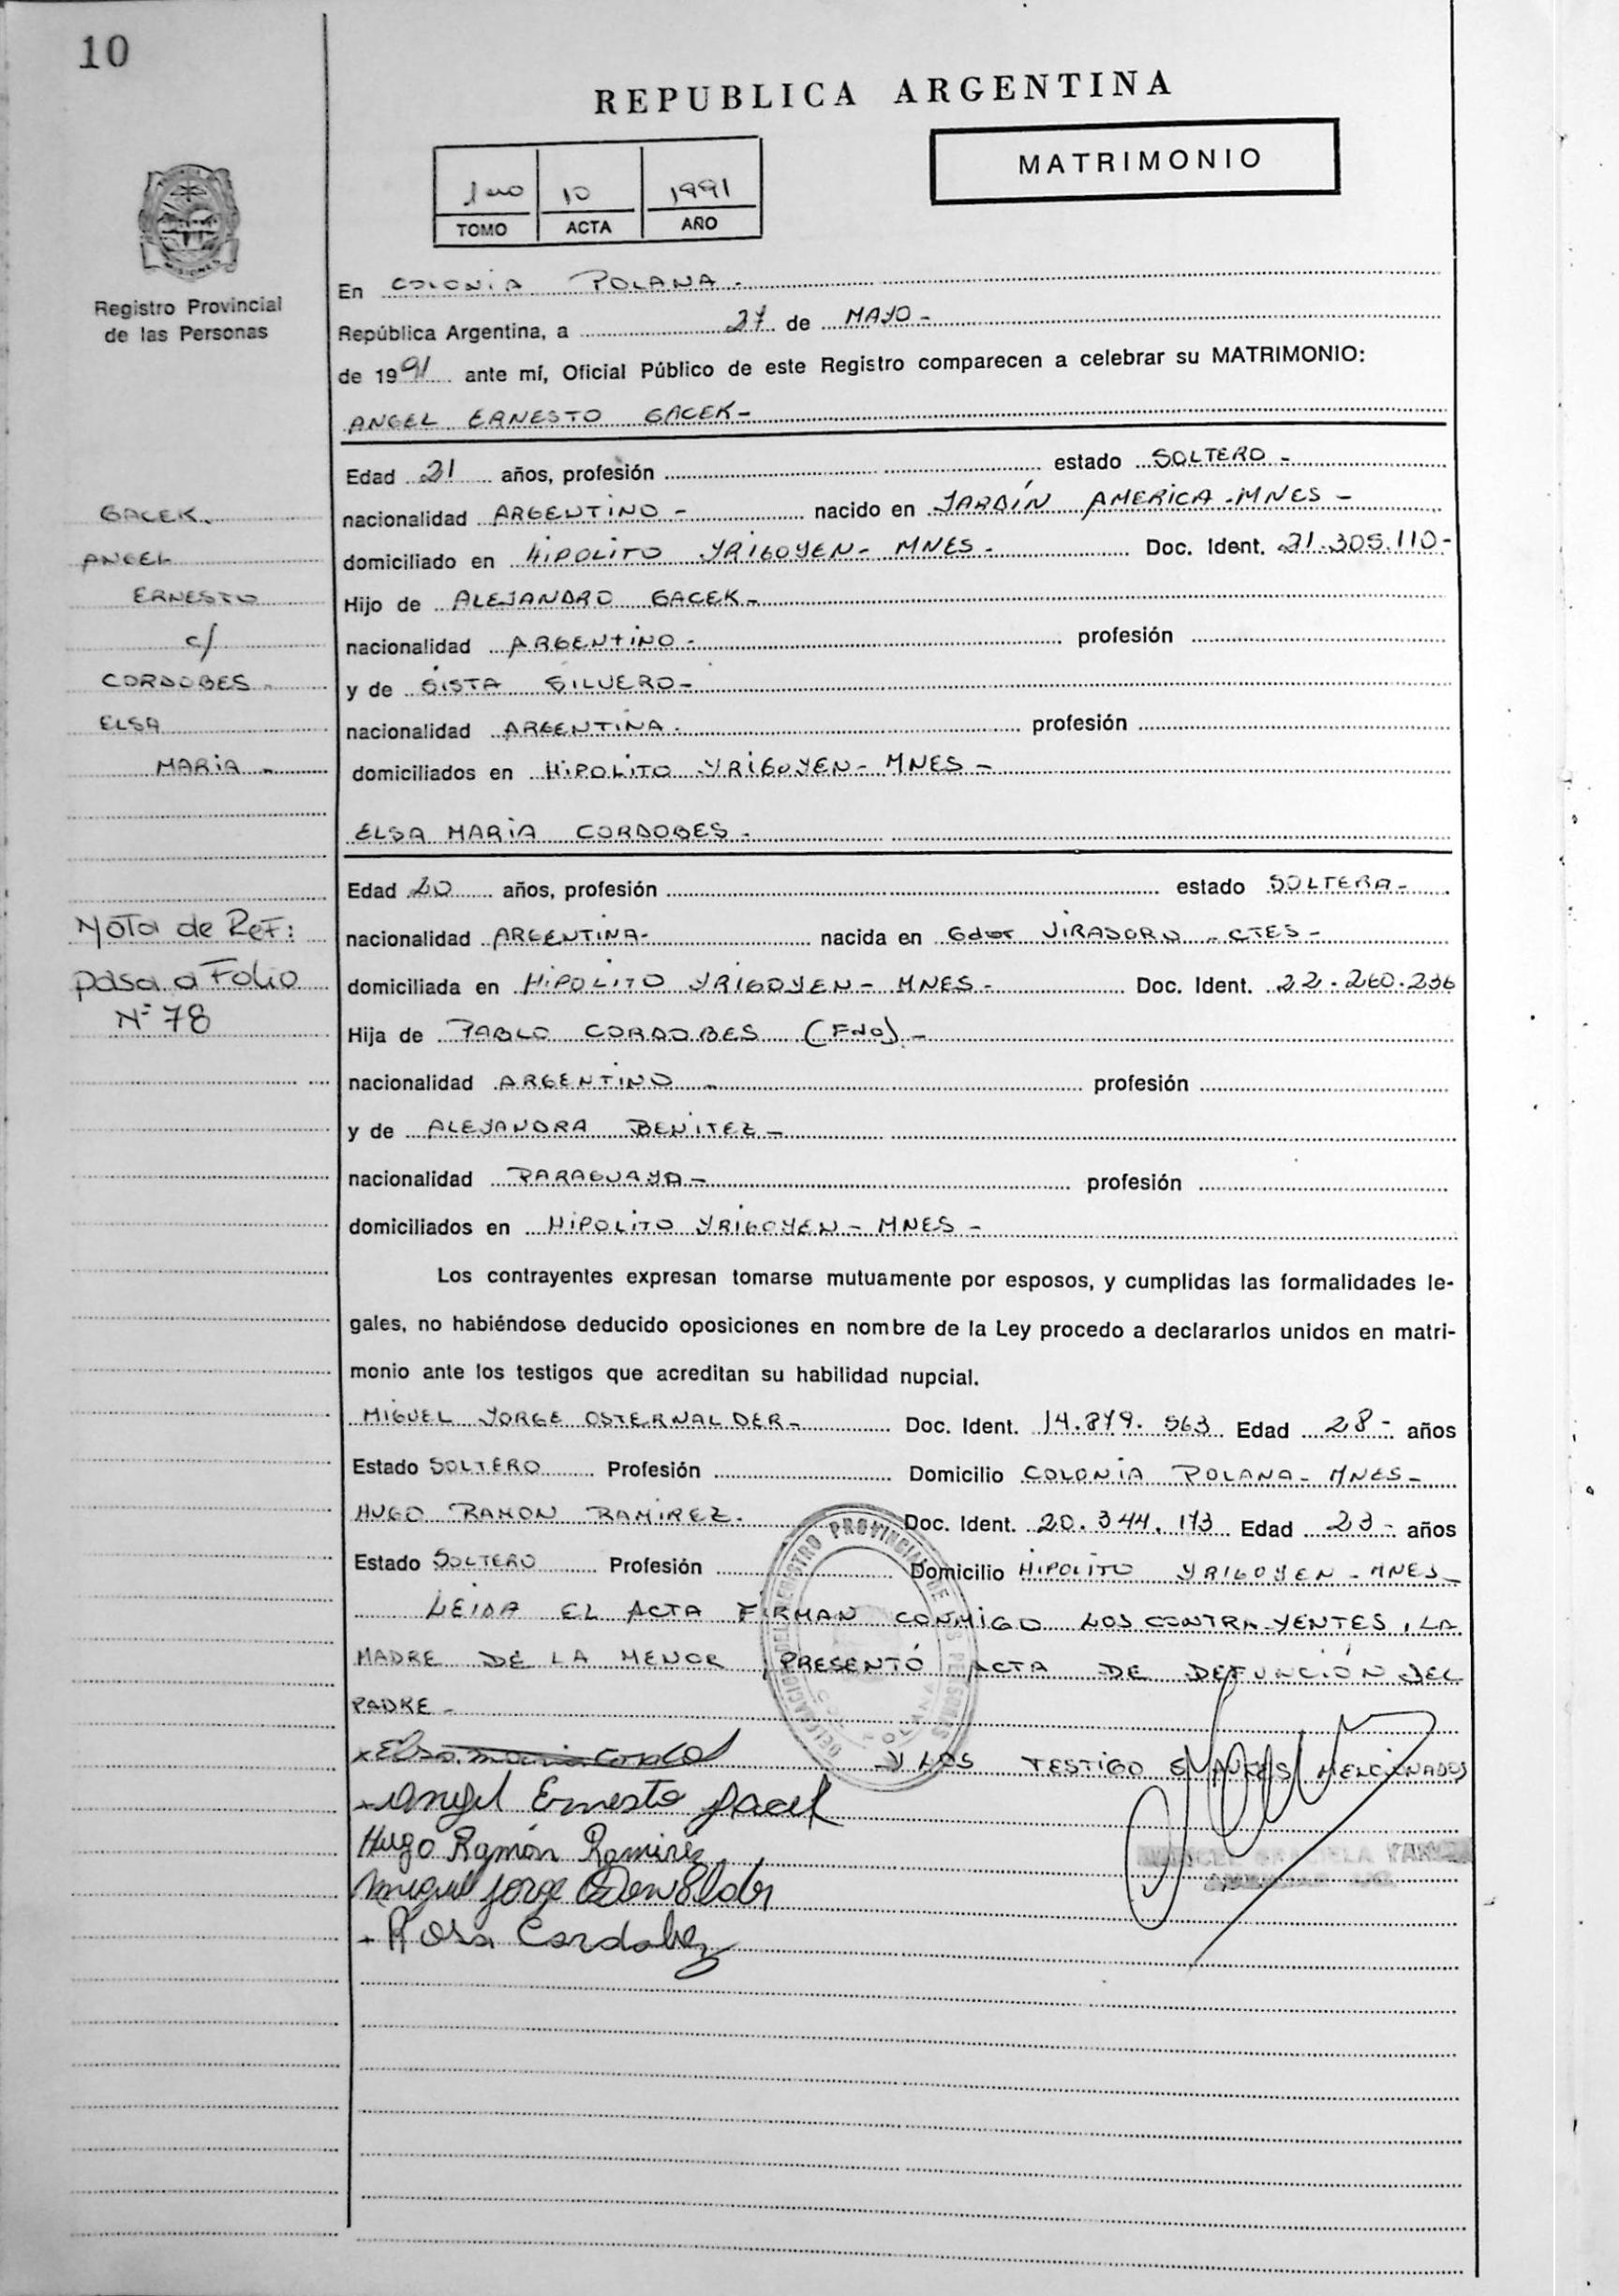 10
REPUBLICA ARGENTINA
MATRIMONIO
1ero 10 1991
TOMO ACTA AÑO
MISIONES
Registro Provincial
de las Personas
En COLONIA POLANA -
República Argentina, a 27 de MAYO -
de 1991 ante mí, Oficial Público de este Registro comparecen a celebrar su MATRIMONIO:
ANGEL ERNESTO GACEK -
Edad 21 años, profesión estado SOLTERO -
nacionalidad ARGENTINO - nacido en JARDÍN AMERICA - MNES -
domiciliado en HIPOLITO YRIGOYEN - MNES - Doc. Ident. 21.305.110 -
Hijo de ALEJANDRO GACEK -
nacionalidad ARGENTINO - profesión
y de SISTA SILVERO -
nacionalidad ARGENTINA - profesión
domiciliados en HIPOLITO YRIGOYEN - MNES -
GACEK.
ANGEL
ERNESTO
c/
CORDOBES -
ELSA
MARIA -
ELSA MARIA CORDOBES -
Edad 20 años, profesión estado SOLTERA -
nacionalidad ARGENTINA - nacida en Gdor VIRASORO - CTES -
domiciliada en HIPOLITO YRIGOYEN - MNES - Doc. Ident. 22.260.236
Hija de PABLO CORDOBES (FDO) -
nacionalidad ARGENTINO - profesión
y de ALEJANDRA BENITEZ -
nacionalidad PARAGUAYA - profesión
domiciliados en HIPOLITO YRIGOYEN - MNES -
Nota de Ref:
pasa a Folio
Nº 78
Los contrayentes expresan tomarse mutuamente por esposos, y cumplidas las formalidades le-
gales, no habiéndose deducido oposiciones en nombre de la Ley procedo a declararlos unidos en matri-
monio ante los testigos que acreditan su habilidad nupcial.
MIGUEL JORGE OSTERWALDER - Doc. Ident. 14.879.563 Edad 28 - años
Estado SOLTERO Profesión Domicilio COLONIA POLANA - MNES -
HUGO RAMON RAMIREZ - Doc. Ident. 20.344.173 Edad 23 - años
Estado SOLTERO Profesión Domicilio HIPOLITO YRIGOYEN - MNES -
LEIDA EL ACTA FIRMAN CONMIGO LOS CONTRAYENTES, LA
MADRE DE LA MENOR PRESENTÓ ACTA DE DEFUNCIÓN DEL
PADRE -
x Elsa maria - Y LOS TESTIGOS ANTES MENCIONADOS
x Angel Ernesto Gacek
Hugo Ramón Ramirez
Miguel Jorge
x Rosa Cordobez